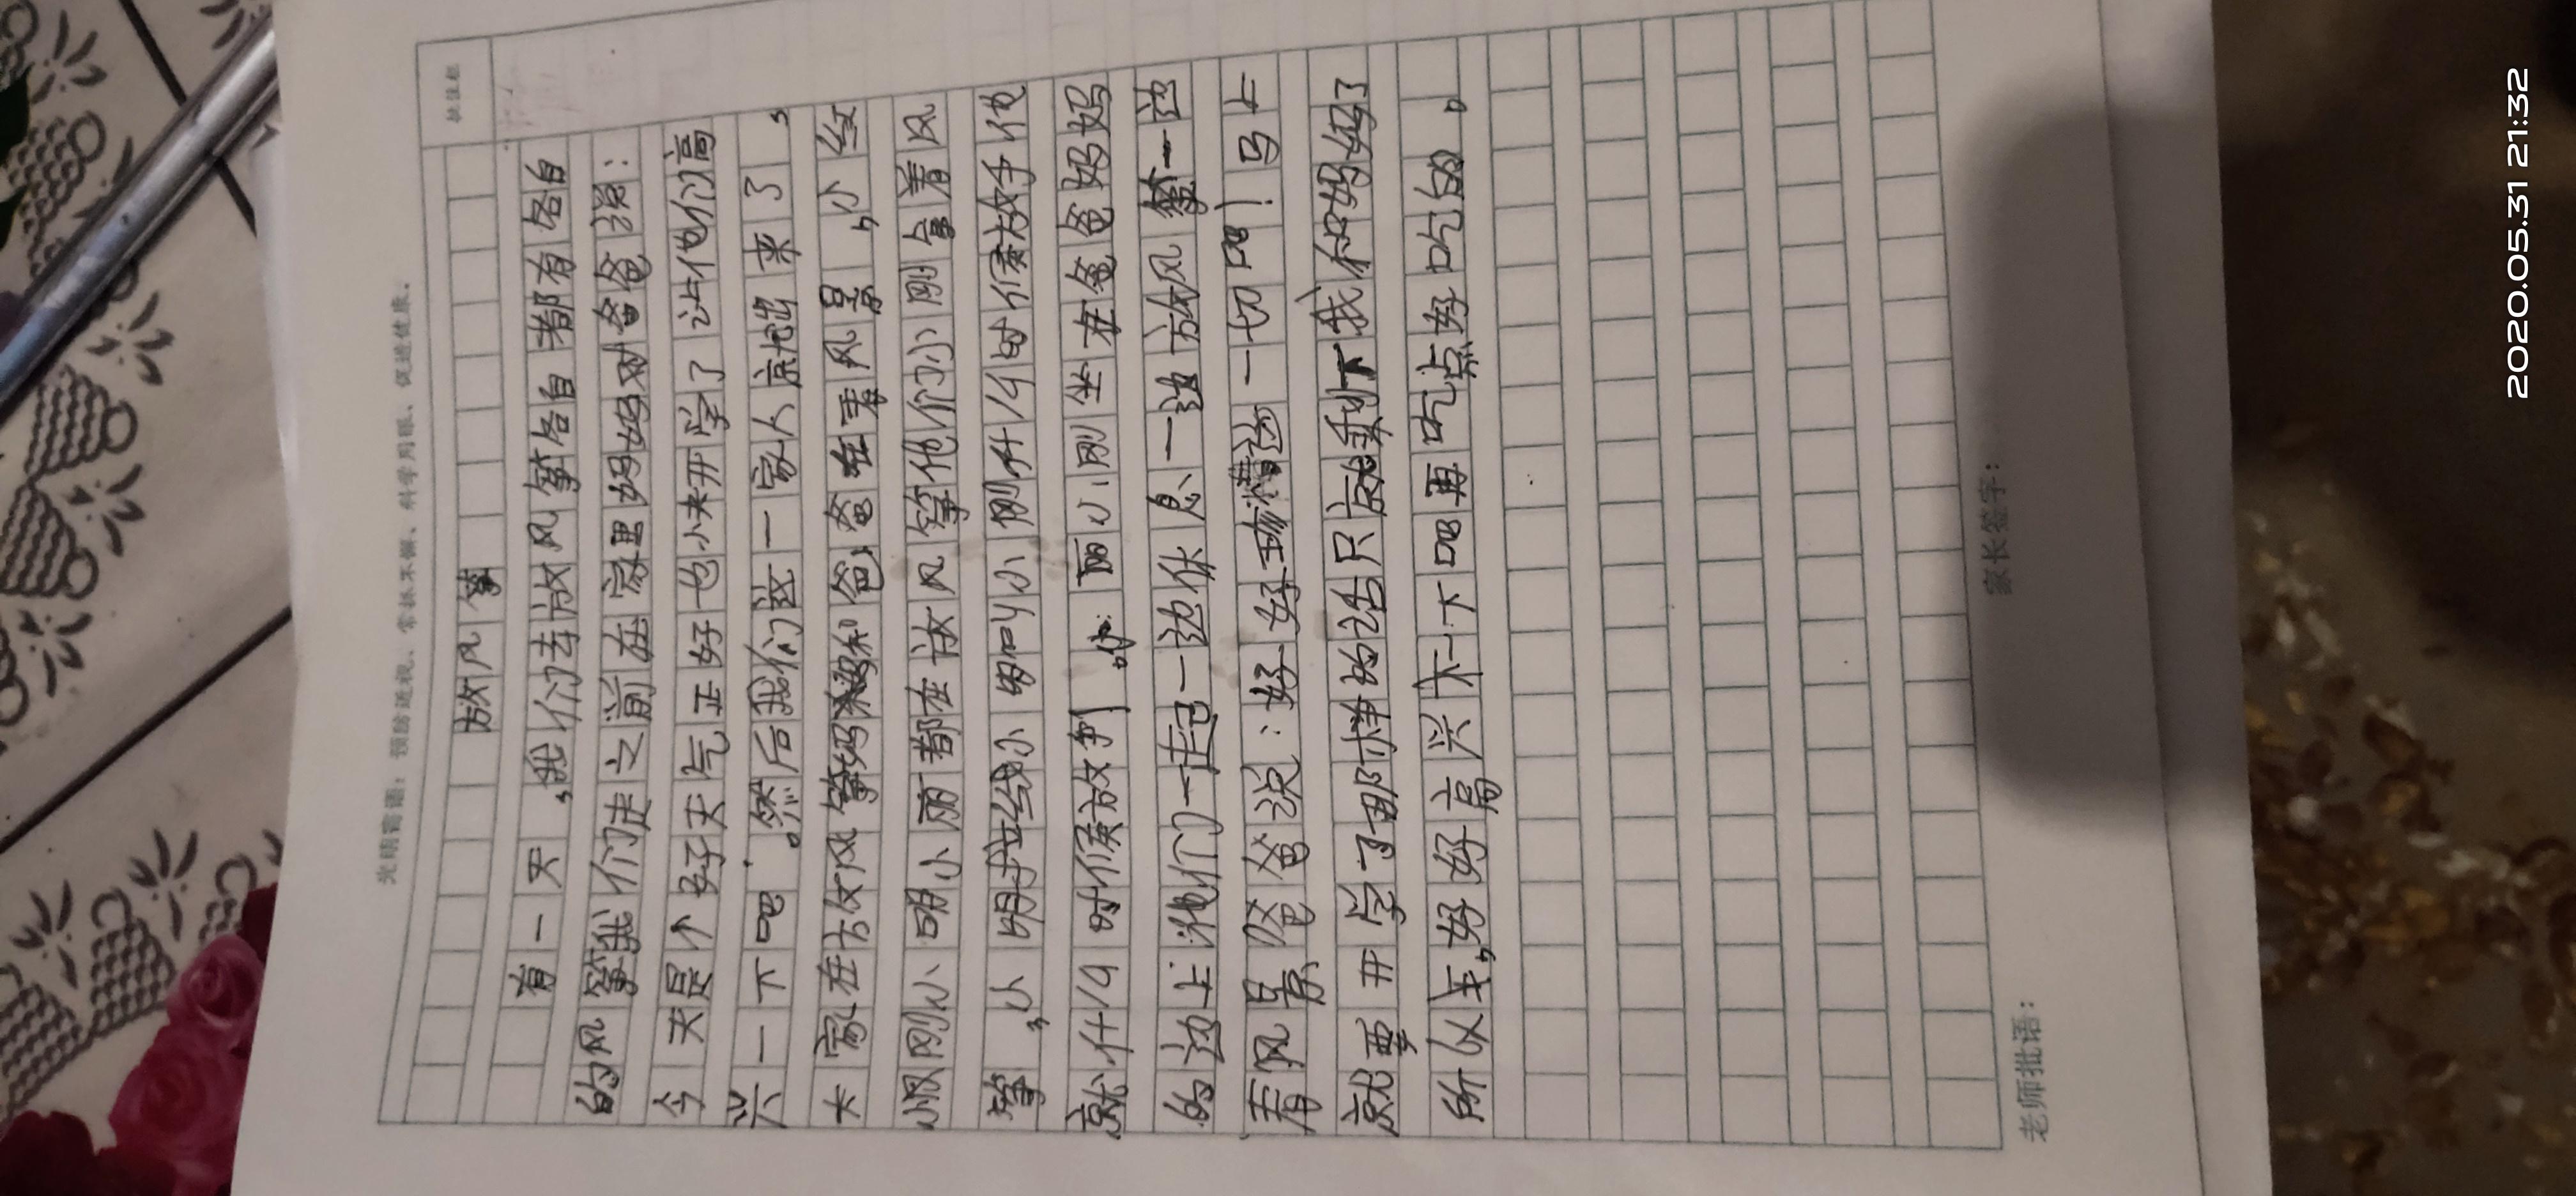 光明寄语：预防近视、常抓不懈、科学用眼、促进健康。
放风筝
有一天，我们去放风筝各自都有各自
的风筝我们走之前在家里妈妈对爸爸说：
今天是个好天气正好也小来开学了让他们高
兴一下吧。然后我们这一家人就出来了，
大家在放风筝妈妈和爸爸在看风景，小纹
小刚小明小丽都在放风筝他们小刚拿着风
筝，小明手拉线小明叫小刚什么时候放手他
就什么时候放手。小丽小刚坐在爸爸妈妈
的边上他们一起一边休息一边放风筝一边
看风景爸爸说：好好珍惜这一切吧！马上
就要开学了那样的话只就剩下我和妈妈了
所以今天，好好高兴一下吧再吃点好吃的。
老师批语：
家长签字：
2020.05.31 21:32